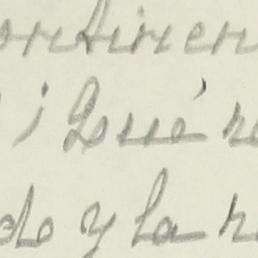 ontinen
¡Qué r
do y la r